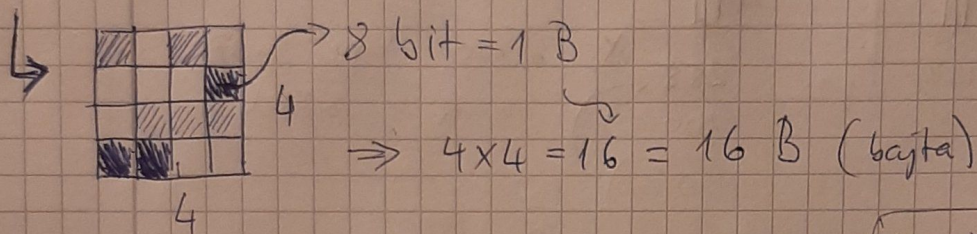 8 bit = 1 B
4
⇒ 4x4 = 16 = 16 B (bajta)
4